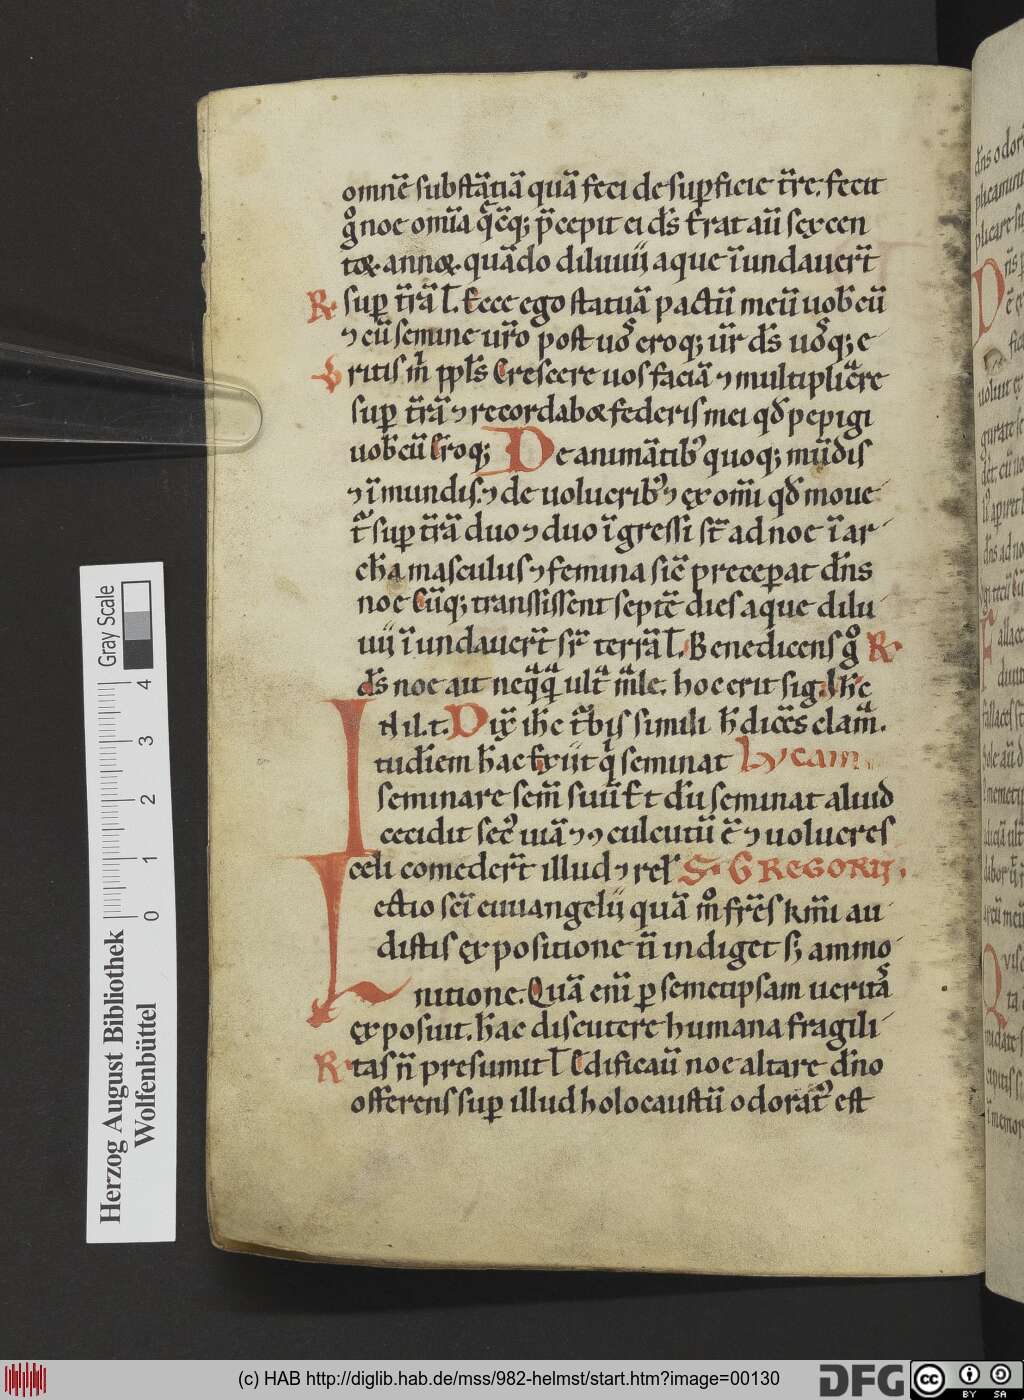 omnē substātiā quā feci de suꝑficie t̄re. fecit
gͦ noe omīa q̄ ꝑcepit ei ds̄ Erat aū sexcen
toꝝ annoꝝ quādo diluuij aque īundauer̄t
R suꝑ t̄rā ł. Ecce ego statuā pactū meū uobcū
⁊ cū semine ur̄o post uos eroq; ur̄ ds̄ uosq; e
ritis m̄ ppl̄s Crescere uos faciā ⁊ multiplicare
suꝑ t̄rā ⁊ recordaboꝛ federis mei qd̄ pepigi
uobcū Eroq; De animātibꝰ quoq; mūdis
⁊ īmundis ⁊ de uolucribꝰ ⁊ ex om̄i qd̄ moue
tᷣ suꝑ t̄rā duo ⁊ duo īgressi st̄ ad noe ī ar
chā masculus ⁊ femina sic̄ preceperat dn̄s
noe Cūq; transissent septē dies aque dilu
uij īundauer̄t sr̄ terrā ł. Benedicens gͦ R
ds̄ noe ait neqͣqͣ ultͣ mͣle. hoc erit sig.
N il. t. Dix̄ ihc̄ tᷣbis simili h̄ dicēs clamͣ.
tudīem h̄ac Exiit qͥ seminat Lucam
seminare sem̄ suū Et dū seminat aliud
cecidit secꝰ uiā ⁊ ꝯculcatū ē ⁊ uolucres
celi comeder̄t illud ⁊ rel̄ S. GREGORIJ.
ectio sc̄i euuangelij quā mͦ fr̄es kr̄mi au
distis expositione n̄ indiget sꝫ ammo
nitione. Quā eni ꝑ semetipsam ueritas
exposuit. h̄ac discutere humana fragili
R tas n̄ presumit ł Edificauᷣ noe altare dn̄o
offerens suꝑ illud holocaustū odoratꝰ est
Gray Scale
4
3
2
1
0
Herzog August Bibliothek
Wolfenbüttel
(c) HAB http://diglib.hab.de/mss/982-helmst/start.htm?image=00130
DFG
cc BY SA